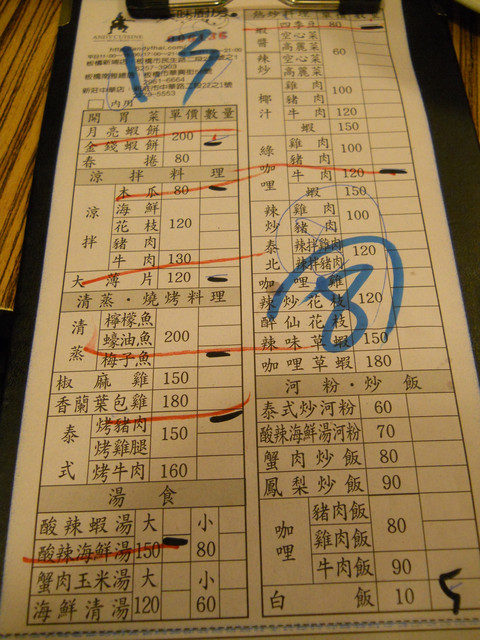 ANDYCUISINE
13
□內用
開胃菜 單價 數量
月亮蝦餅 200
金錢蝦餅
春捲 80
涼拌料理
涼拌
木瓜 80
海鮮
花枝 120
豬肉
牛肉 130
大薄片 120
清蒸·燒烤料理
清蒸
檸檬魚
蠔油魚 200
梅子魚
椒麻雞 150
香蘭葉包雞 180
泰式
烤豬肉 150
烤雞腿
烤牛肉 160
湯食
酸辣蝦湯 大 小
酸辣海鮮湯 150 80
蟹肉玉米湯 大 小
海鮮清湯 120 60
蝦醬
四季豆 80
空心菜
高麗菜 60
辣炒
空心菜
高麗菜
椰汁
雞肉 100
豬肉
牛肉 120
蝦 150
綠咖哩
雞肉 100
豬肉
牛肉 120
蝦 150
辣炒
雞肉 100
豬肉
泰北
辣拌雞肉 120
辣拌豬肉
咖哩雞
辣炒花枝 120
醉仙花枝
辣味草蝦 150
咖哩草蝦 180
河粉·炒飯
泰式炒河粉 60
酸辣海鮮湯河粉 70
蟹肉炒飯 80
鳳梨炒飯 90
咖哩
豬肉飯 80
雞肉飯
牛肉飯 90
白飯 10 5